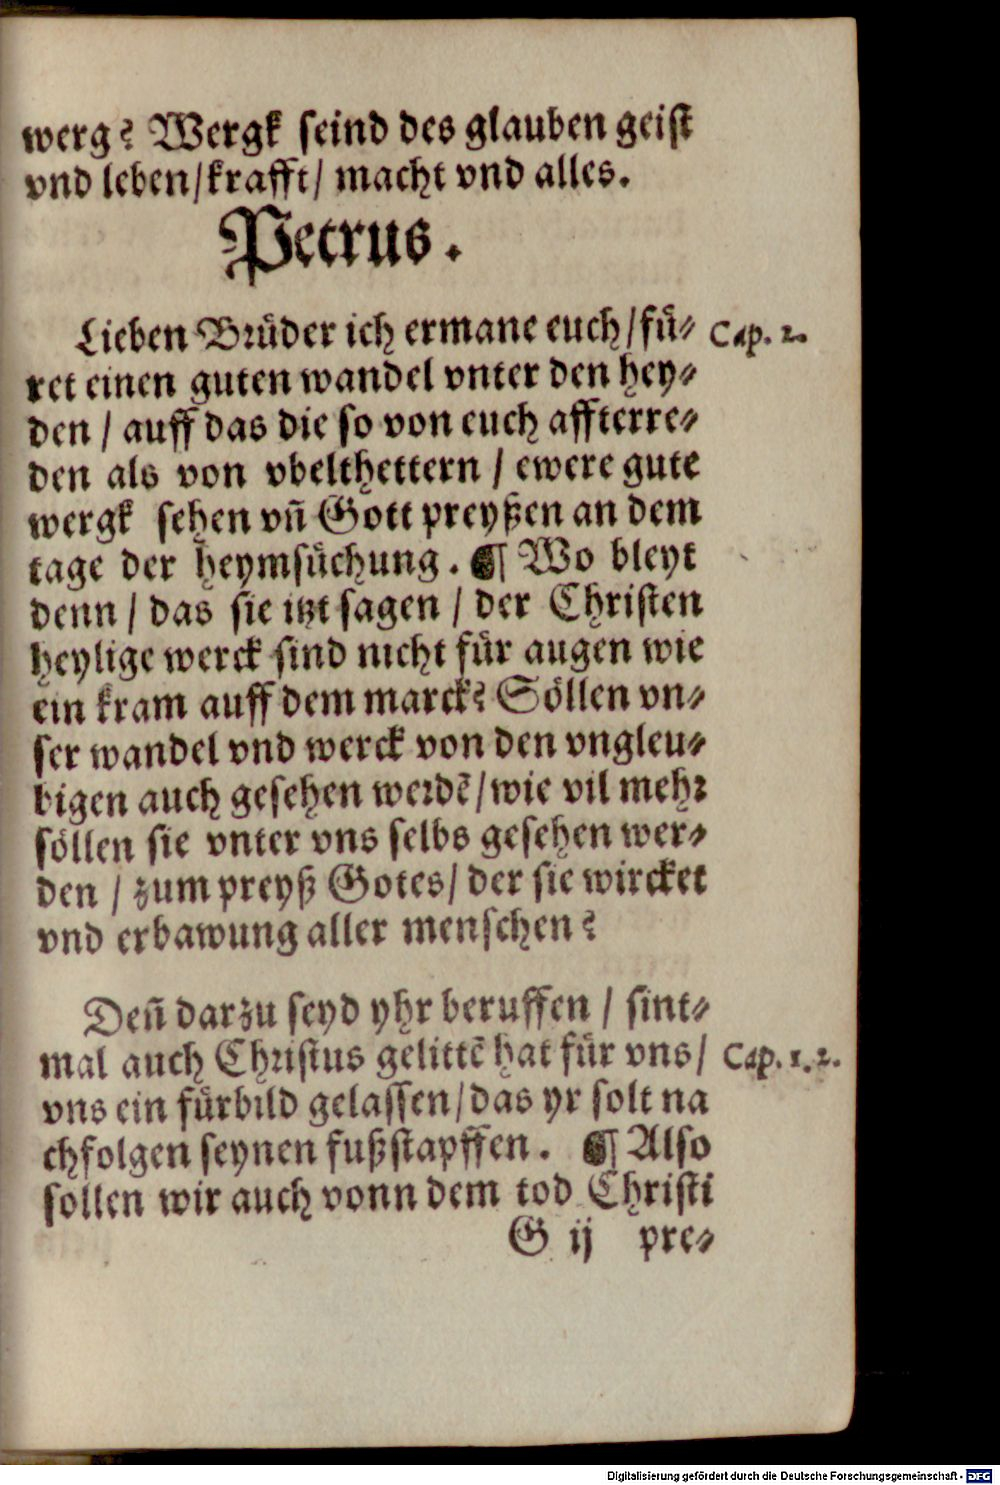 werg? Wergk seind des glauben geist
vnd leben/krafft/ macht vnd alles.
Petrus.
Lieben Brüder ich ermane euch/fü⸗ Cap. 2.
ret einen guten wandel vnter den hey⸗
den / auff das die so von euch affterre⸗
den als von vbelthettern / ewere gute
wergk sehen vñ Gott preyßen an dem
tage der heymsüchung. ¶ Wo bleyt
denn / das sie itzt sagen / der Christen
heylige werck sind nicht für augen wie
ein kram auff dem marck? Söllen vn⸗
ser wandel vnd werck von den vngleu⸗
bigen auch gesehen werdẽ/wie vil mehr
söllen sie vnter vns selbs gesehen wer⸗
den / zum preyß Gotes/ der sie wircket
vnd erbawung aller menschen?
Deñ darzu seyd yhr beruffen / sint⸗
mal auch Christus gelittẽ hat für vns/ Cap. 1. 2.
vns ein fürbild gelassen/das yr solt na
chfolgen seynen fußstapffen. ¶ Also
sollen wir auch vonn dem tod Christi
G ij pre⸗
Digitalisierung gefördert durch die Deutsche Forschungsgemeinschaft - DFG